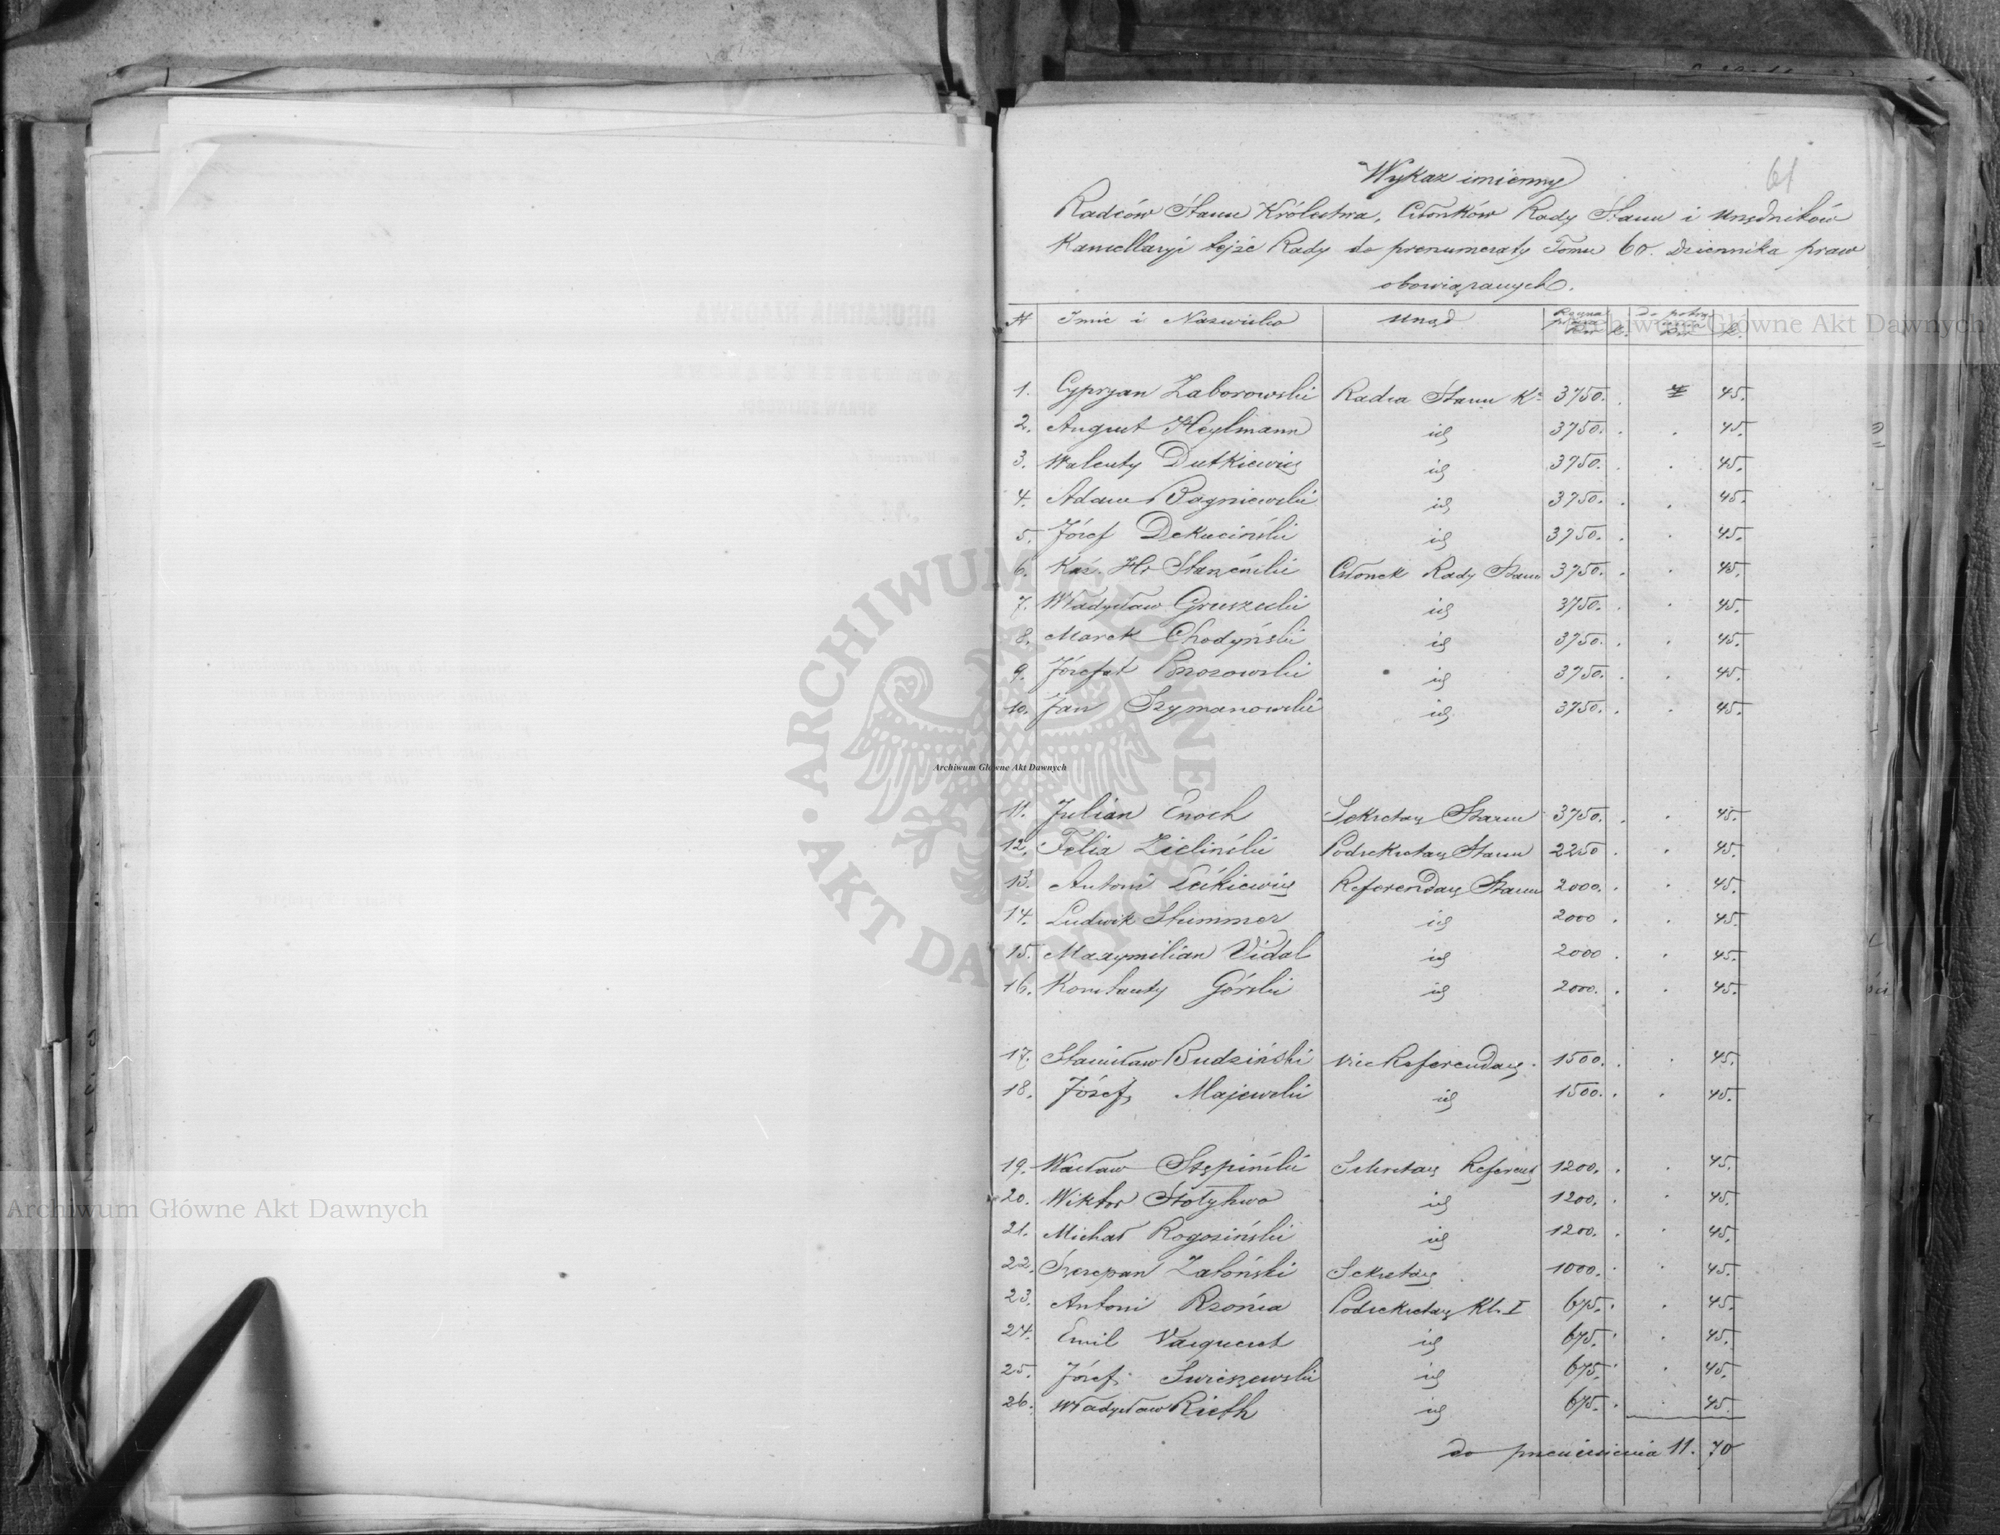 61
Wykaz imienny
Radców Stanu Królestwa, Członków Rady Stanu i Urzędników
Kancellaryi tejże Rady do prenumeraty Tomu 60. Dziennika praw
obowiązanych.
N Imie i Nazwisko Urząd Roczna płaca Rsr k. Do pobrania Rsr k.
1. Cypryan Zaborowski Radca Stanu Kr 3750. 45.
2. August Heylmann id 3750. 45.
3. Walenty Dutkiewicz id 3750. 45.
4. Adam Bagniewski id 3750. 45.
5. Józef Dekuciński id 3750. 45.
6. Kaź. Hr Starzeński Członek Rady Stanu 3750. 45.
7. Władysław Gruszecki id 3750. 45.
8. Marek Chodyński id 3750. 45.
9. Józefat Brzozowski id 3750. 45.
10. Jan Szymanowski id 3750. 45.
11. Julian Enoch Sekretarz Stanu 3750. 45.
12. Felix Zieliński Podsekretarz Stanu 2250 45.
13. Antoni Referendarz Stanu 2000. 45.
14. Ludwik Stummer id 2000 45.
15. Maxymilian Vidal id 2000 45.
16. Konstanty Górski id 2000. 45.
17. Stanisław Budziński Vice Referendarz 1500. 45.
18. Józef Majewski id 1500. 45.
19. Wacław Stępiński Sekretarz Referent 1200. 45.
20. Wiktor Stołyhwo id 1200. 45.
21. Michał Rogoziński id 1200. 45.
22. Szczepan Załoński Sekretarz 1000. 45.
23. Antoni Rzońca Podsekretarz Kl. I 675. 45.
24. Emil Vasqueret id 675. 45.
25. Józef Swieszewski id 675. 45.
26. Władysław Rieth id 675. 45.
do przeniesienia 11. 70
Archiwum Główne Akt Dawnych
ARCHIWUM GŁÓWNE AKT DAWNYCH
Archiwum Główne Akt Dawnych
Archiwum Główne Akt Dawnych